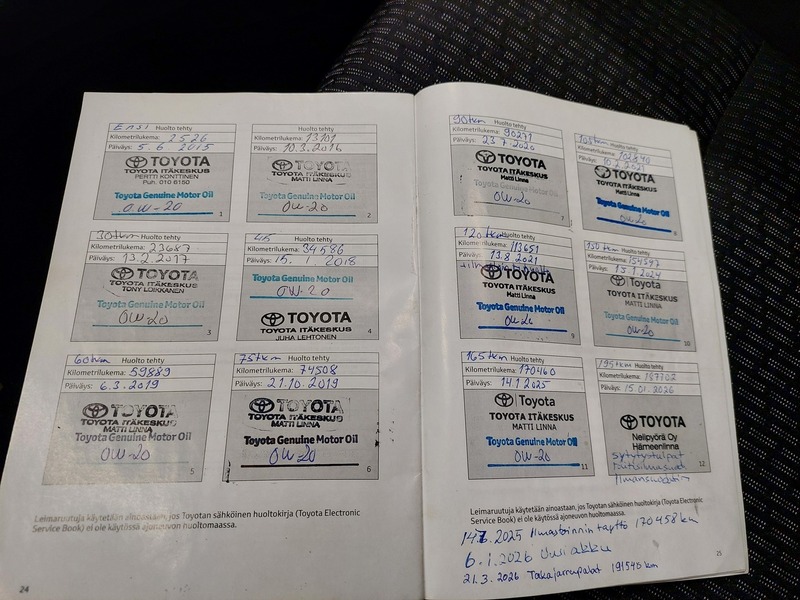 ENSI Huolto tehty
Kilometrilukema: 2526
Päiväys: 5.6 2015
TOYOTA
TOYOTA ITÄKESKUS
PERTTI KONTTINEN
Puh. 010 6150
Toyota Genuine Motor Oil
0W-20
1
Huolto tehty
Kilometrilukema: 13101
Päiväys: 10.3.2016
TOYOTA
TOYOTA ITÄKESKUS
MATTI LINNA
Toyota Genuine Motor Oil
0W-20
2
30tkm Huolto tehty
Kilometrilukema: 23687
Päiväys: 13.2.2017
TOYOTA
TOYOTA ITÄKESKUS
TONY LOIKKANEN
Toyota Genuine Motor Oil
0W-20
3
45 Huolto tehty
Kilometrilukema: 34586
Päiväys: 15. 1 2018
Toyota Genuine Motor Oil
0W-20
TOYOTA
TOYOTA ITÄKESKUS
JUHA LEHTONEN
4
60tkm Huolto tehty
Kilometrilukema: 59889
Päiväys: 6.3.2019
TOYOTA
TOYOTA ITÄKESKUS
MATTI LINNA
Toyota Genuine Motor Oil
0W-20
5
75tkm Huolto tehty
Kilometrilukema: 74508
Päiväys: 21.10.2019
TOYOTA
TOYOTA ITÄKESKUS
MATTI LINNA
Toyota Genuine Motor Oil
0W-20
6
Leimaruutuja käytetään ainoastaan, jos Toyotan sähköinen huoltokirja (Toyota Electronic
Service Book) ei ole käytössä ajoneuvon huoltomaassa.
24
90tkm Huolto tehty
Kilometrilukema: 90271
Päiväys: 23.7.2020
TOYOTA
TOYOTA ITÄKESKUS
Matti Linna
Toyota Genuine Motor Oil
0W-20
7
105tkm Huolto tehty
Kilometrilukema: 102840
Päiväys: 10.2.2021
TOYOTA
TOYOTA ITÄKESKUS
Matti Linna
Toyota Genuine Motor Oil
0W-20
8
120tkm Huolto tehty
Kilometrilukema: 113651
Päiväys: 13.8.2021
TOYOTA
TOYOTA ITÄKESKUS
Matti Linna
Toyota Genuine Motor Oil
0W-20
9
150tkm Huolto tehty
Kilometrilukema: 154547
Päiväys: 15.1.2024
TOYOTA
TOYOTA ITÄKESKUS
MATTI LINNA
Toyota Genuine Motor Oil
0W-20
10
165tkm Huolto tehty
Kilometrilukema: 170460
Päiväys: 14.1.2025
TOYOTA
TOYOTA ITÄKESKUS
MATTI LINNA
Toyota Genuine Motor Oil
0W-20
11
195tkm Huolto tehty
Kilometrilukema: 187702
Päiväys: 15.01.2026
TOYOTA
Nelipyörä Oy
Hämeenlinna
sytytystulpat
12
ilmansuodatin
Leimaruutuja käytetään ainoastaan, jos Toyotan sähköinen huoltokirja (Toyota Electronic
Service Book) ei ole käytössä ajoneuvon huoltomaassa.
2025 Ilmastoinnin täyttö 170458 km
6.1.2026 Uusi akku
21.3.2026 Takajarrupalat 191540 km
25